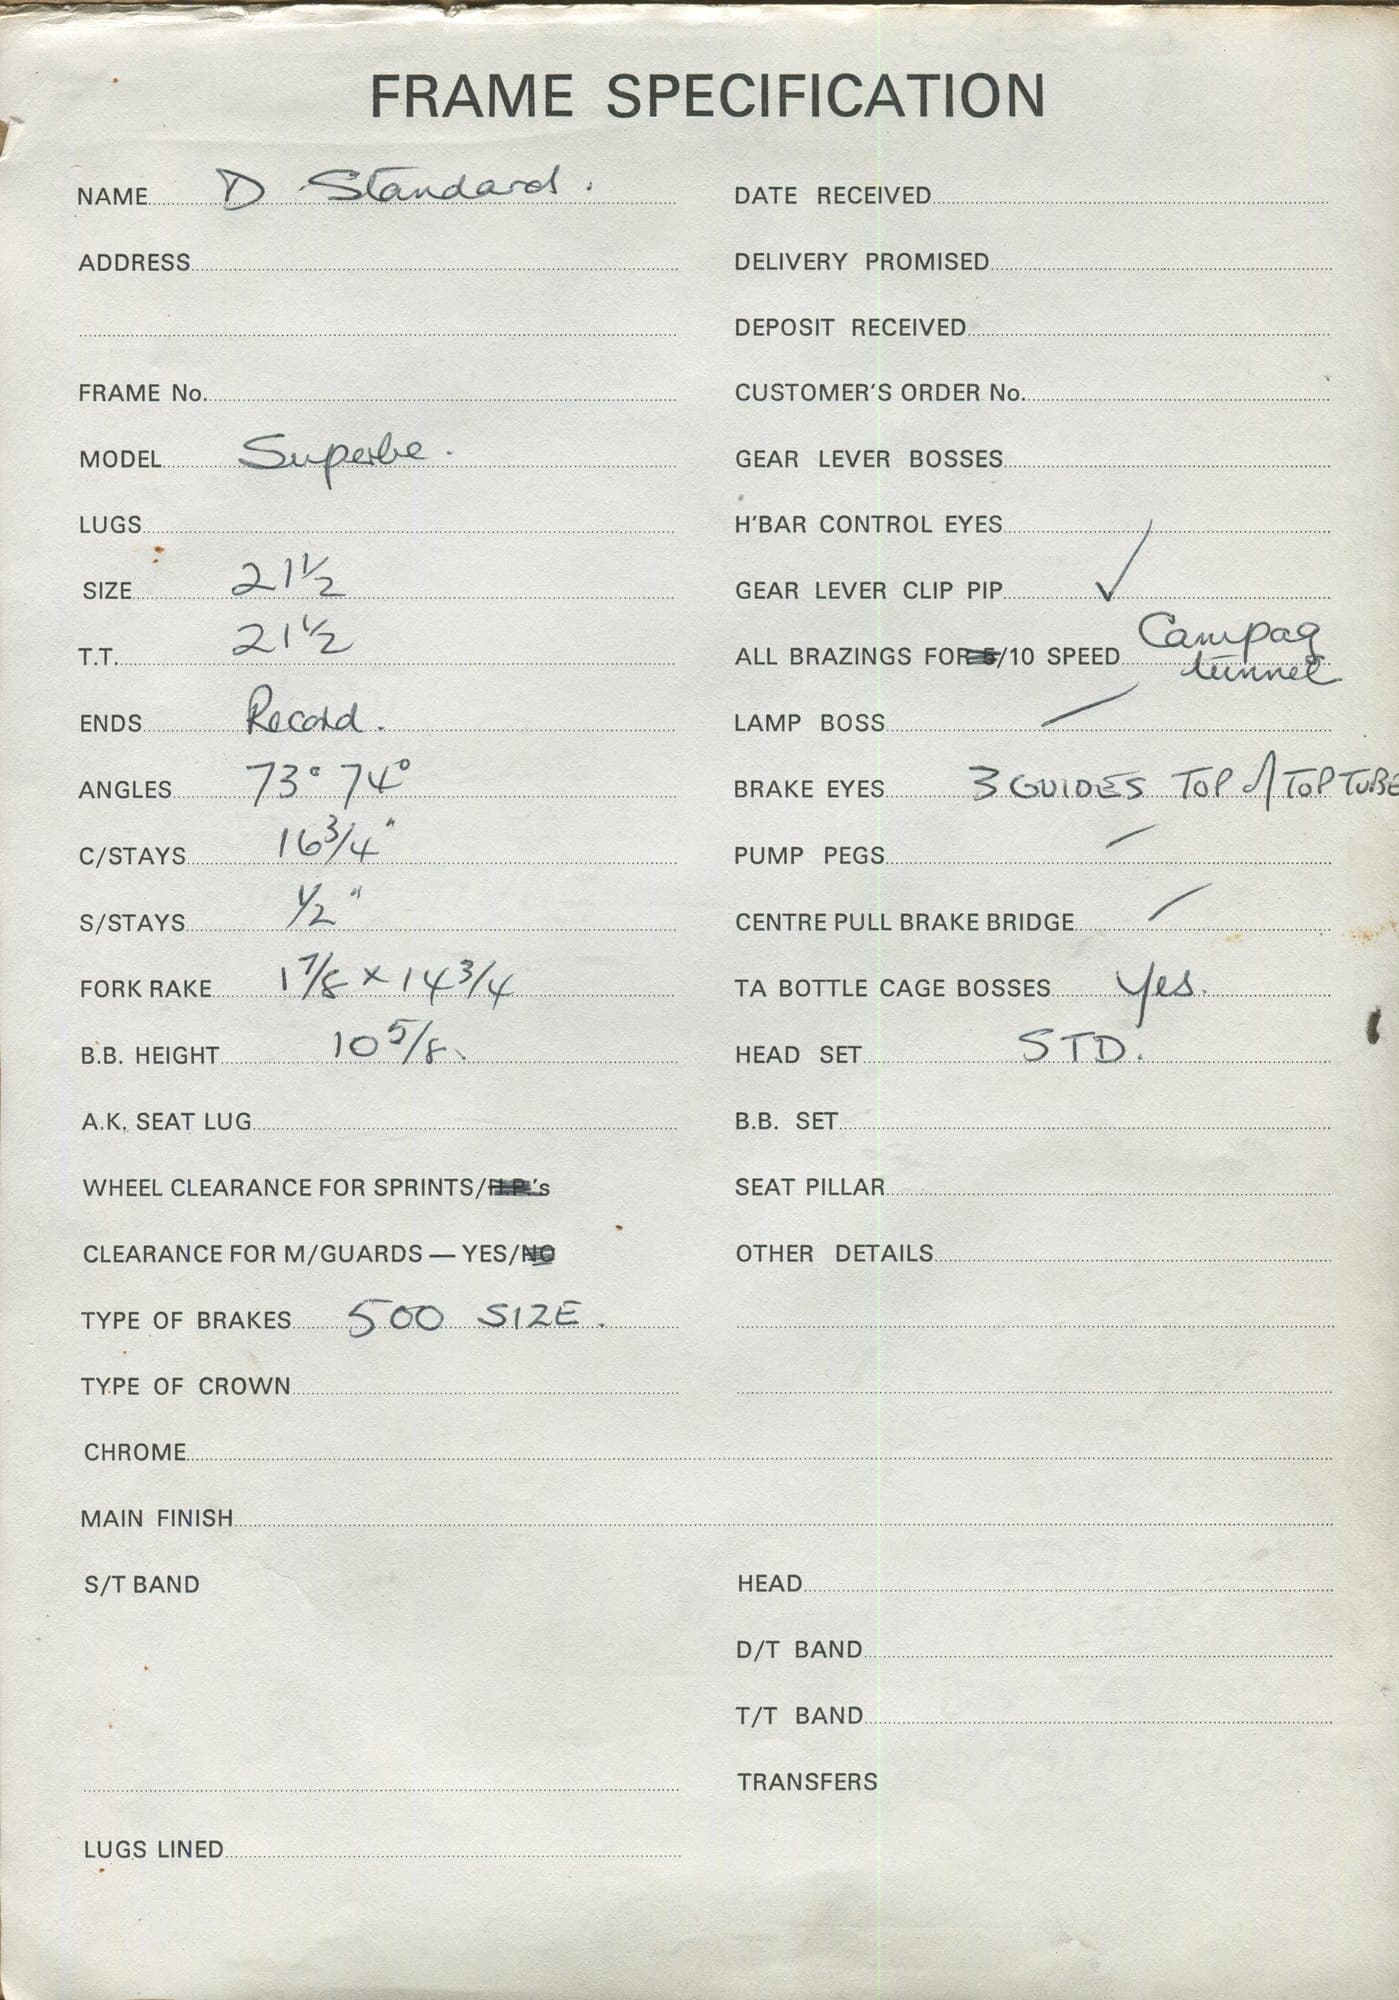 FRAME SPECIFICATION
NAME D Standard.
ADDRESS
FRAME No.
MODEL Superbe.
LUGS
SIZE 21 1/2
T.T. 21 1/2
ENDS Record.
ANGLES 73° 74°
C/STAYS 16 3/4"
S/STAYS 1/2"
FORK RAKE 1 7/8 x 14 3/4
B.B. HEIGHT 10 5/8
A.K. SEAT LUG
WHEEL CLEARANCE FOR SPRINTS/H.P.'s
CLEARANCE FOR M/GUARDS — YES/NO
TYPE OF BRAKES 500 SIZE.
TYPE OF CROWN
CHROME
MAIN FINISH
S/T BAND
LUGS LINED
DATE RECEIVED
DELIVERY PROMISED
DEPOSIT RECEIVED
CUSTOMER'S ORDER No.
GEAR LEVER BOSSES
H'BAR CONTROL EYES
GEAR LEVER CLIP PIP ✓
ALL BRAZINGS FOR 5/10 SPEED Campag
tunnel
LAMP BOSS /
BRAKE EYES 3 GUIDES TOP of TOP TUBE
PUMP PEGS /
CENTRE PULL BRAKE BRIDGE /
TA BOTTLE CAGE BOSSES Yes.
HEAD SET STD.
B.B. SET
SEAT PILLAR
OTHER DETAILS
HEAD
D/T BAND
T/T BAND
TRANSFERS